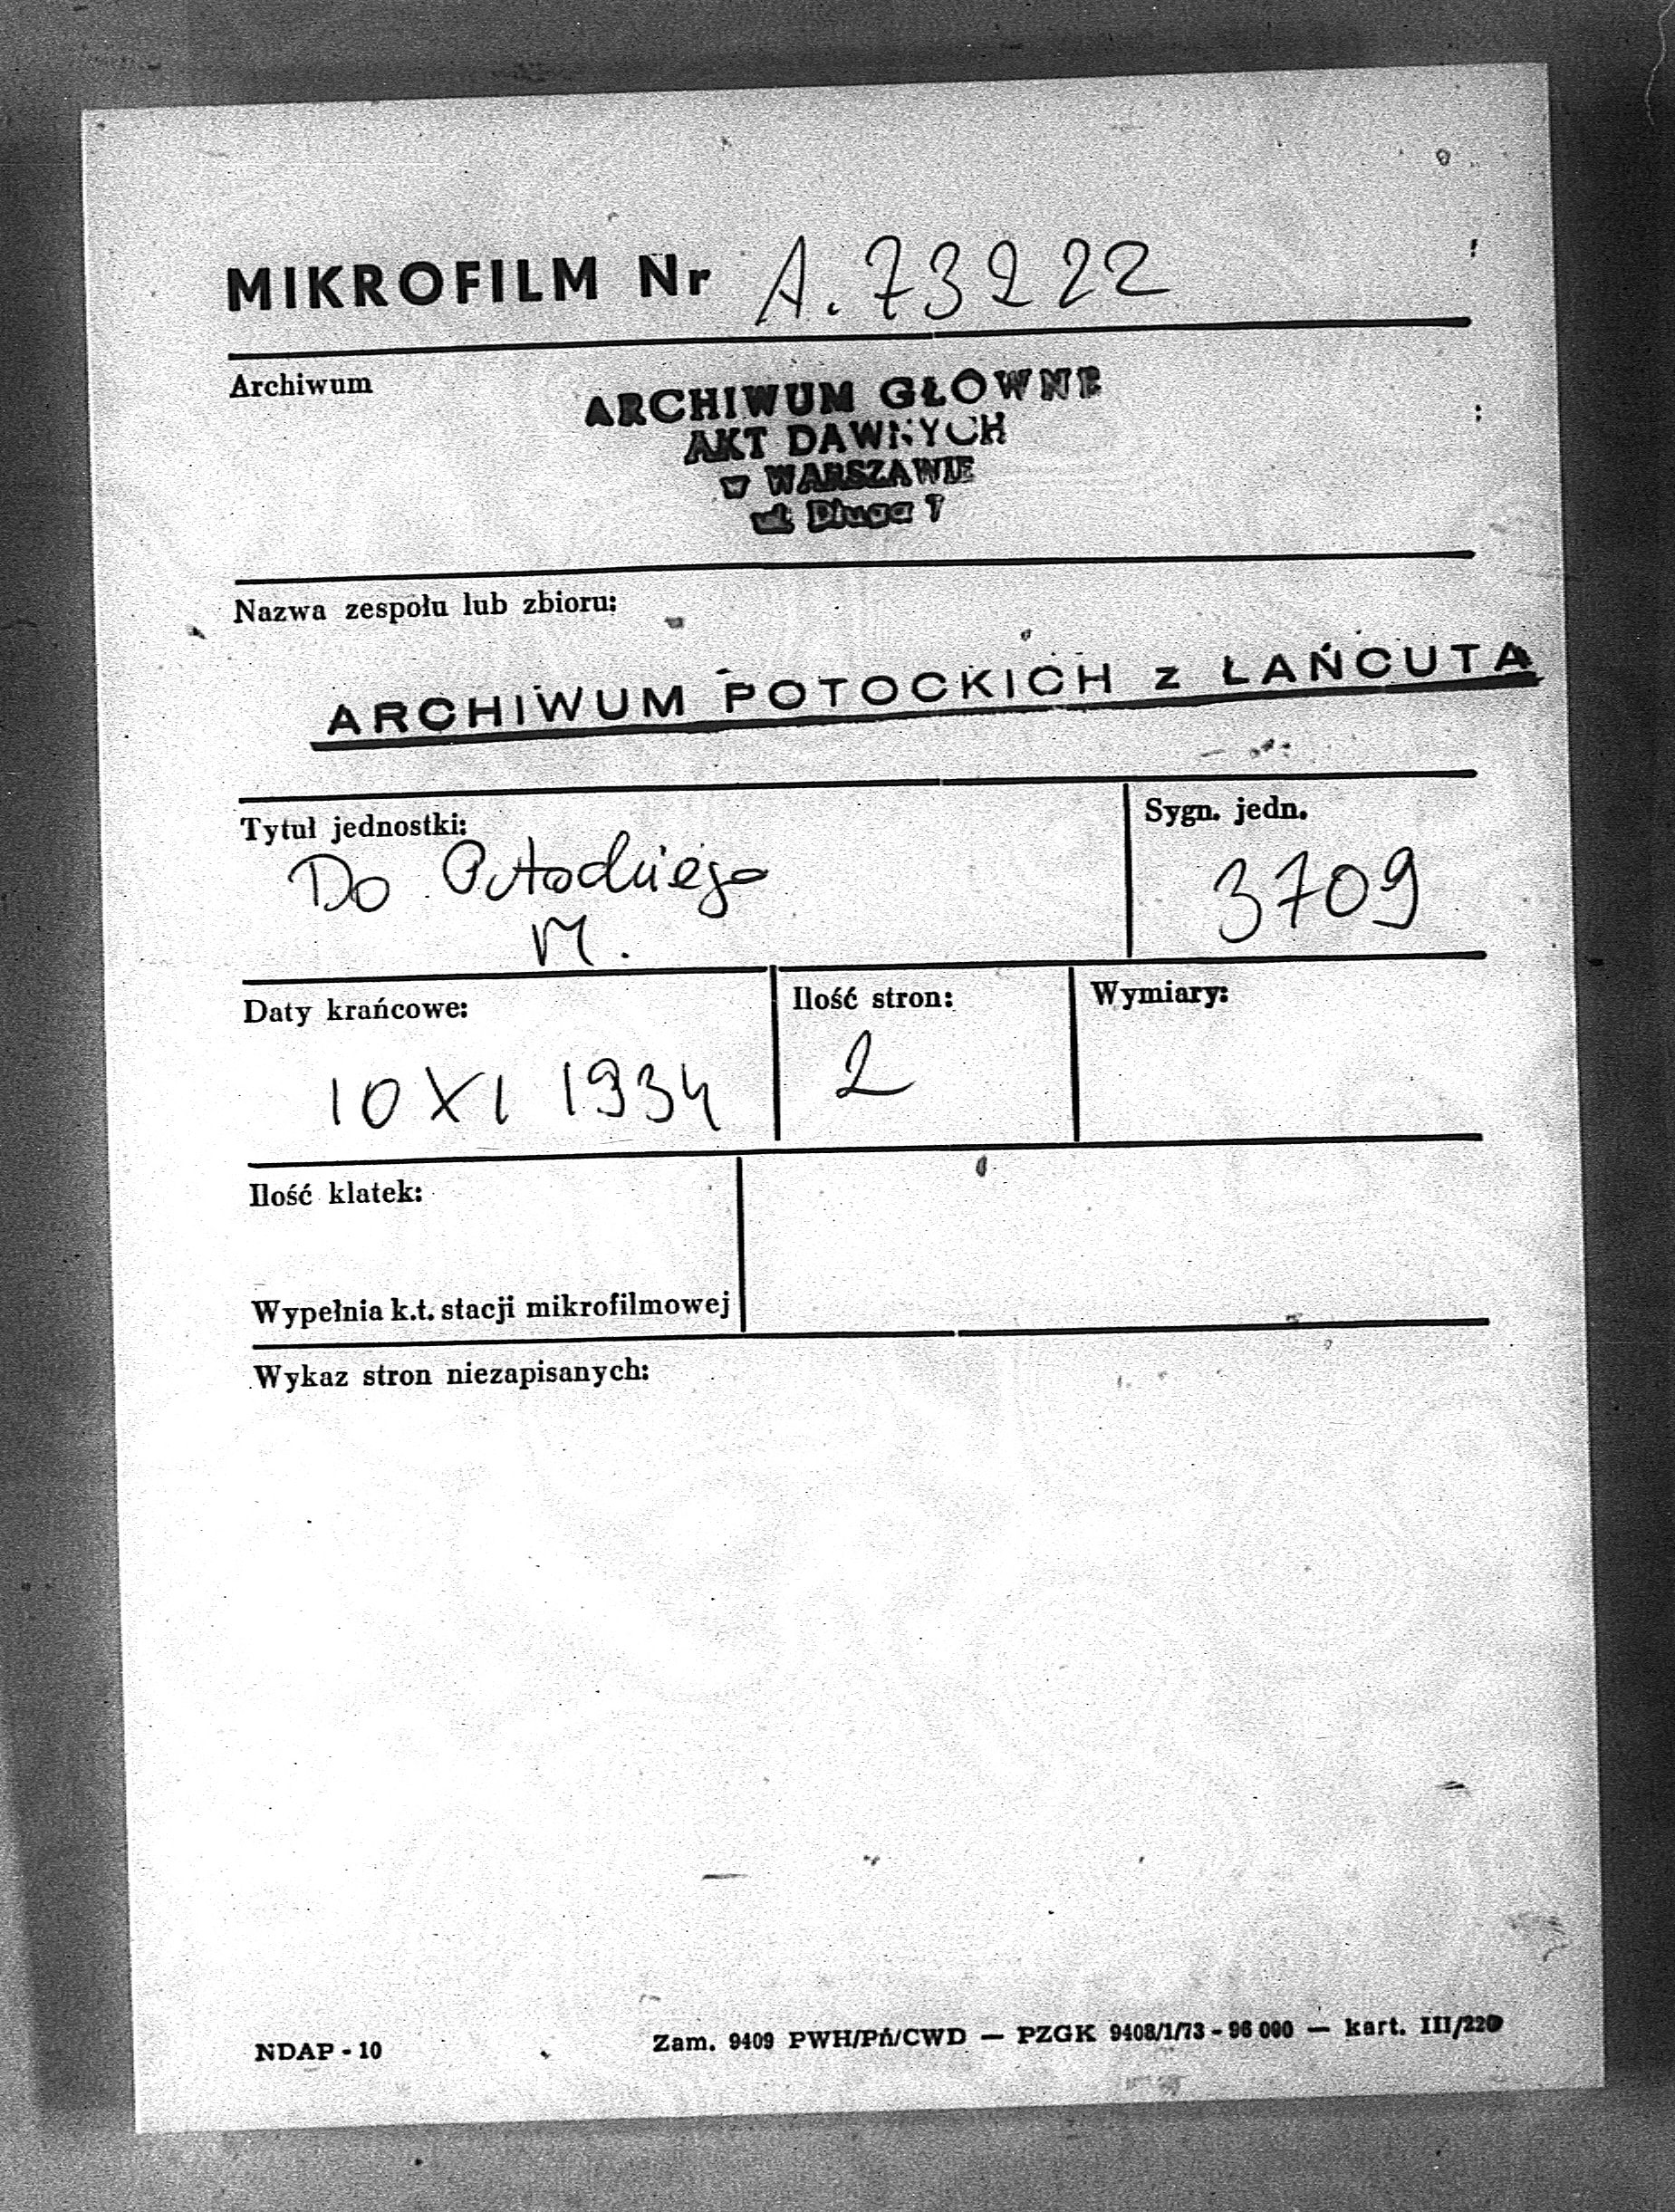 MIKROFILM Nr A. 73222
Archiwum
ARCHIWUM GŁÓWNE
AKT DAWNYCH
w WARSZAWIE
ul. Długa 7
Nazwa zespołu lub zbioru:
ARCHIWUM POTOCKICH z ŁAŃCUTA
Tytuł jednostki:
Do Potockiego
M.
Sygn. jedn.
3709
Daty krańcowe:
10 XI 1934
Ilość stron:
2
Wymiary:
Ilość klatek:
Wypełnia k.t. stacji mikrofilmowej
Wykaz stron niezapisanych:
NDAP - 10
Zam. 9409 PWH/PŃ/CWD — PZGK 9408/1/73 - 96 000 — kart. III/220